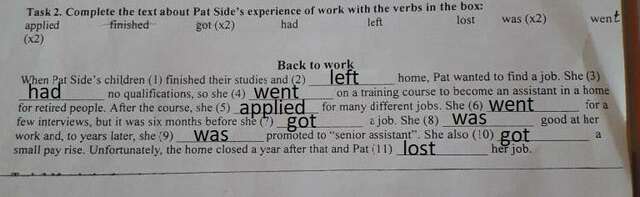 Task 2. Complete the text about Pat Side's experience of work with the verbs in the box:
applied finished got (x2) had left lost was (x2) went
(x2)
Back to work
When Pat Side's children (1) finished their studies and (2) left home, Pat wanted to find a job. She (3)
had no qualifications, so she (4) went on a training course to become an assistant in a home
for retired people. After the course, she (5) applied for many different jobs. She (6) went for a
few interviews, but it was six months before she (7) got a job. She (8) was good at her
work and, to years later, she (9) was promoted to "senior assistant". She also (10) got a
small pay rise. Unfortunately, the home closed a year after that and Pat (11) lost her job.